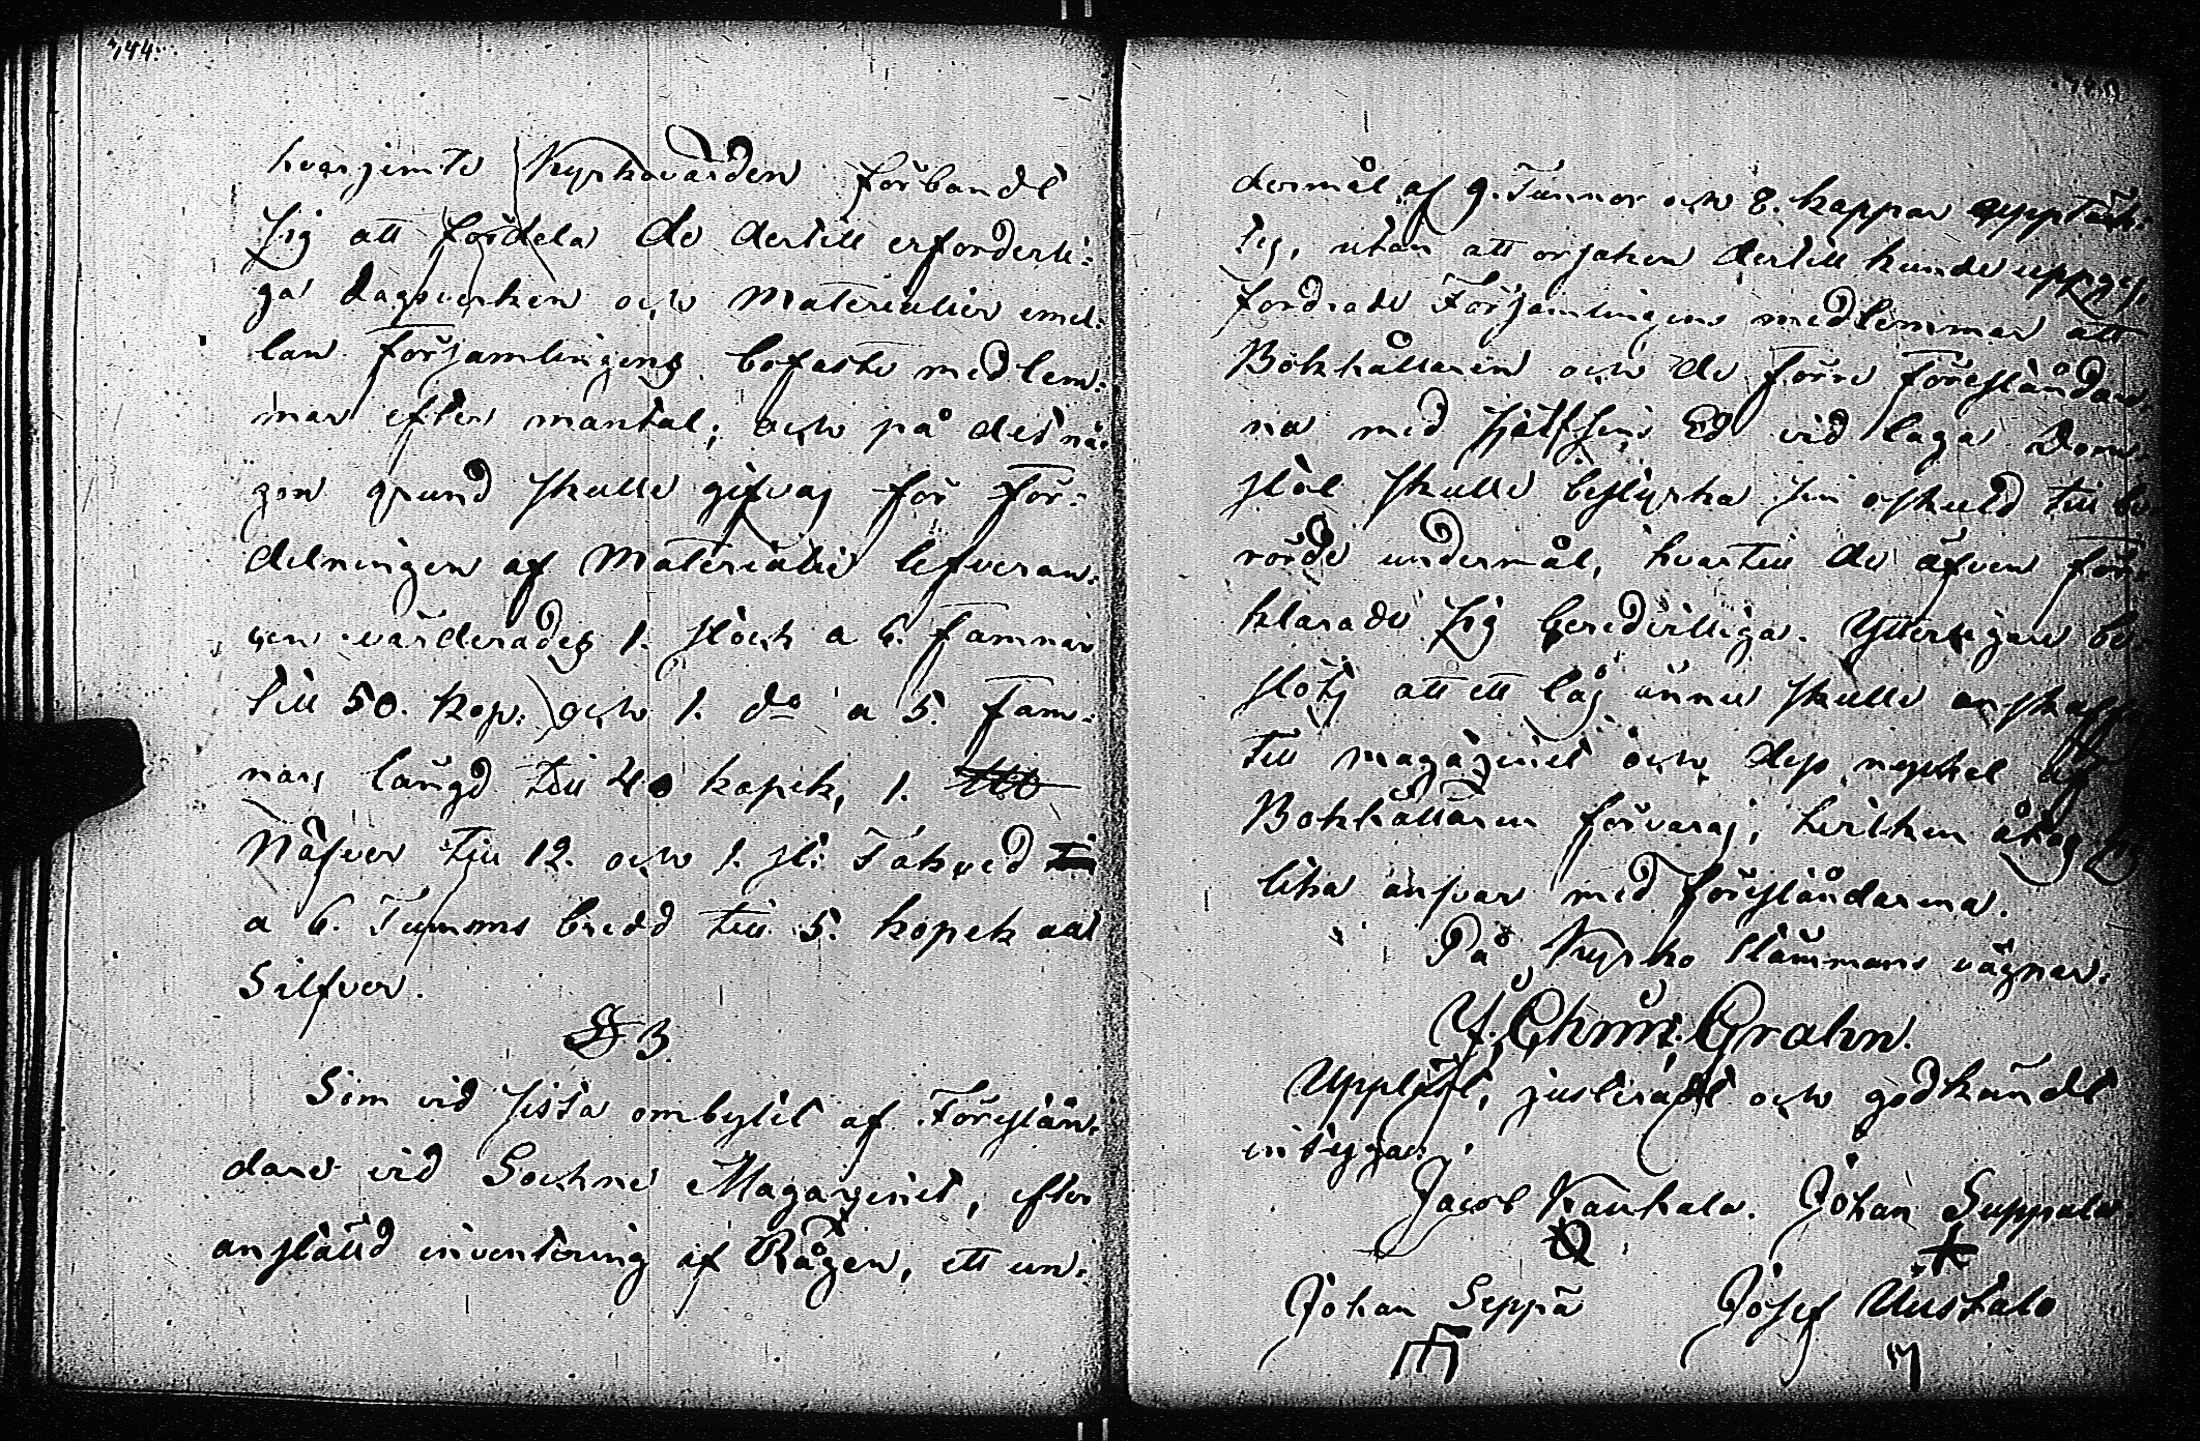 144.
hvarjemte Kyrkovärden förbandt
sig att fördela de dertill erforderli-
ga dagsverken och Materialier emel-
lan Församlingens bofaste medlem-
mar efter mantal; och på det nå-
gon grund skulle gifvas för för-
delningen af Materialie lefveran-
cen värderades 1. stock a 6. famnar
till 50. kop: och 1. do a 5. fam-
nars längd till 40 kopek, 1.
Näfver till 12. och 1. st: Takved
a 6. Tumms bredd till 5. kopek allt
Silfver.
§ 3.
Som vid sista ombytet af Förestån-
dare vid Sockne Magazinet, efter
anställd inventering af Rågen, ett un-
dermål af 9. Tunnor och 8. kappar upptäck-
tes, utan att orsaken dertill kunde uppges,
fordrade Församlingens medlemmar att
Bokhållaren och de förre Föreståndar-
na med sjelfsins Ed vid laga Dom-
stol skulle bestyrka sin oskuld till be-
rörde undermål, hvartill de äfven för-
klarade sig beredvilliga. Ytterligare be-
slöts att ett lås ännu skulle anskaffas
till magazinet och dess nyckel af
Bokhållaren förvaras, hvilken åtog sig
lika ansvar med föreståndarena.
På Kyrko Stämmans vägnar.
Y. Chr: Grahn.
Uppläst, justeradt och godkändt
intygga:
Jacob Kauhala. Johan Suppala.
Johan Seppä Josef Uustalo